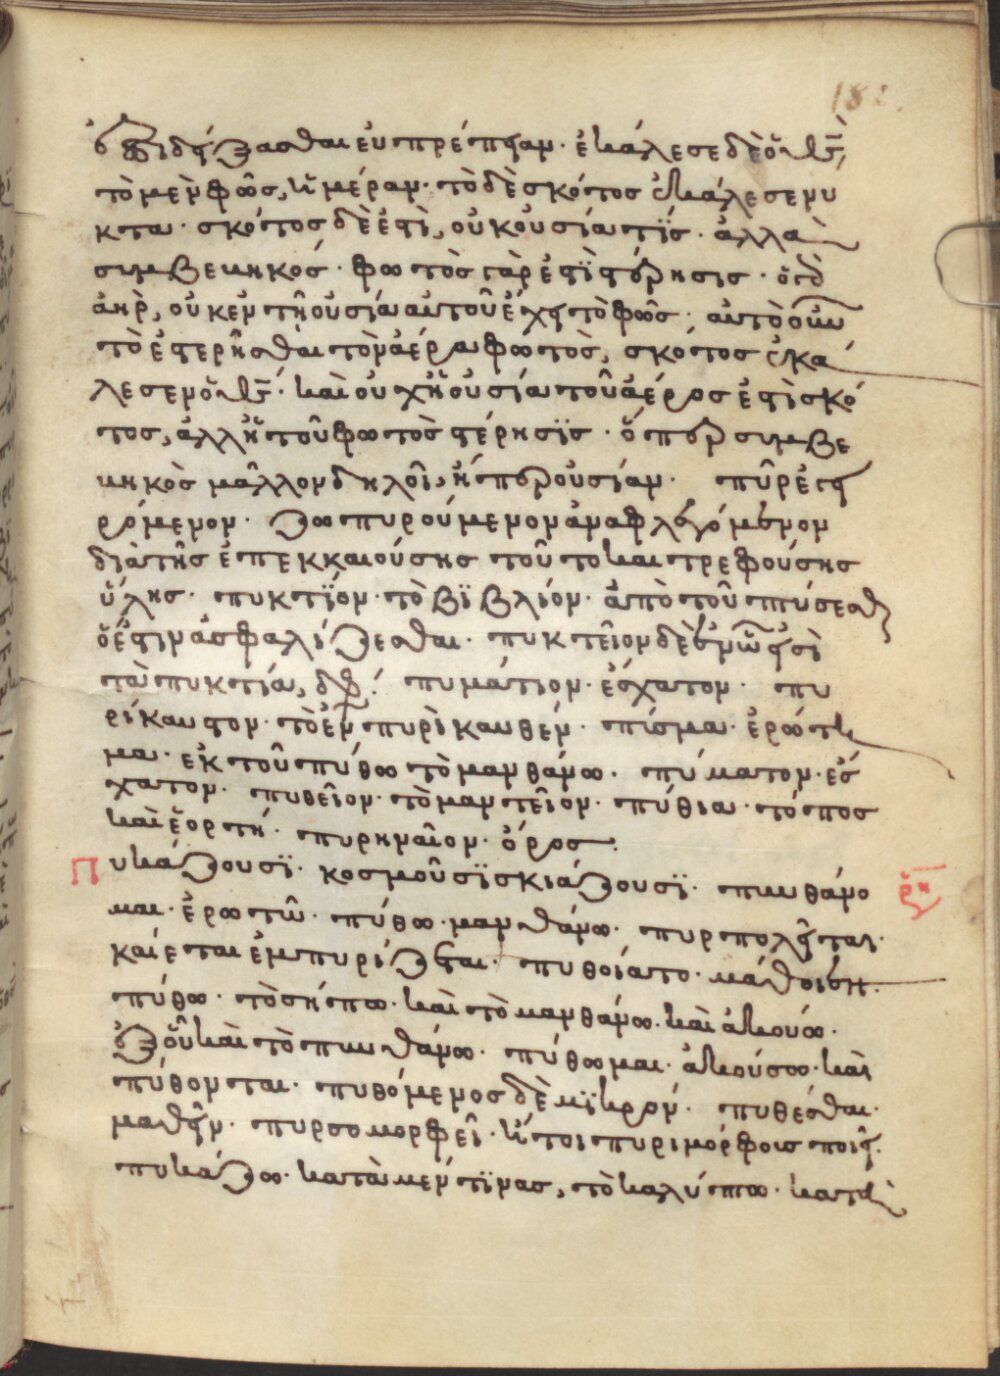 ἐνδείξασθαι εὐπρέπειαν· ἐκάλεσε δὲ ὁ θς̅
τὸ μὲν φῶς, ἡμέραν· τὸ δὲ σκότος ἐκάλεσε νύ
κτα· σκότος δὲ ἐστὶ, οὐκ οὐσία τίς· ἀλλὰ
συμβεκηκός· φωτὸς γὰρ ἐστὶ στέρησις· ὁ γὰρ
ἀὴρ, οὐκ ἐν τῇ οὐσία αὐτοῦ ἔχει τὸ φῶς· αὐτὸ οὖν
τὸ ἐστερῆσθαι τὸν ἀέρα φωτὸς, σκότος ἐκά
λεσεν ὁ θς̅· καὶ οὐχ ἡ οὐσία τοῦ ἀέρος ἐστὶ σκό
τος, ἀλλ' ἡ τοῦ φωτὸς στέρησϊς· ὅπερ συμβε
κηκὸς μᾶλλον δηλοῖ, ἤπερ οὐσίαν· πῦρ ἐγει
ρόμενον· ζωπυρούμενον ἀναφλεγόμενον
διὰ τῆς ἐπεκκαιούσης τοῦτο καὶ τρεφούσης
ὕλης· πυκτΐον· τὸ βϊβλίον· ἀπὸ τοῦ πτύσεσθ
ὅ ἐστιν ἀσφαλίζεσθαι· πυκτεῖον δὲ
τὰ πυκτία, πυμάτιον· ἔσχατον· πυ
ρίκαυστον· τὸ ἐν πυρὶ καυθέν· πῖσμα· ἐρώτη
μα· ἐκ τοῦ πύθω τὸ μανθάνω· πύματον· ἔσ
χατον· πυθεῖον· τὸ μαντεῖον· πύθια· τόπος
καὶ ἑορτή· πυρηναῖον· ὄρος·
Πυκάζουσϊ· κοσμοῦσϊ σκιάζουσϊ· πυνθάνο ρκ
μαι· ἐρωτῶ· πύθω· μανθάνω· πυρπολεῖται·
καίεται ἐμπυρίζεται· πυθοίατο· μάθοιεν·
πύθω· τὸ σήπω· καὶ τὸ μανθάνω· καὶ ἀκούω·
ἐξ οὗ καὶ τὸ πυνθάνω· πύθωμαι· ἀκούσω· καὶ
πύθονται· πυθόμενος δὲ μϊκρόν· πυθέσθαι·
μαθεῖν· πυρσομορφεῖ· ἤτοι πυριμόρφοις ποιεῖ·
πυκάζω· κατὰ μέν τϊνας, τὸ καλύπτω· κατὰ